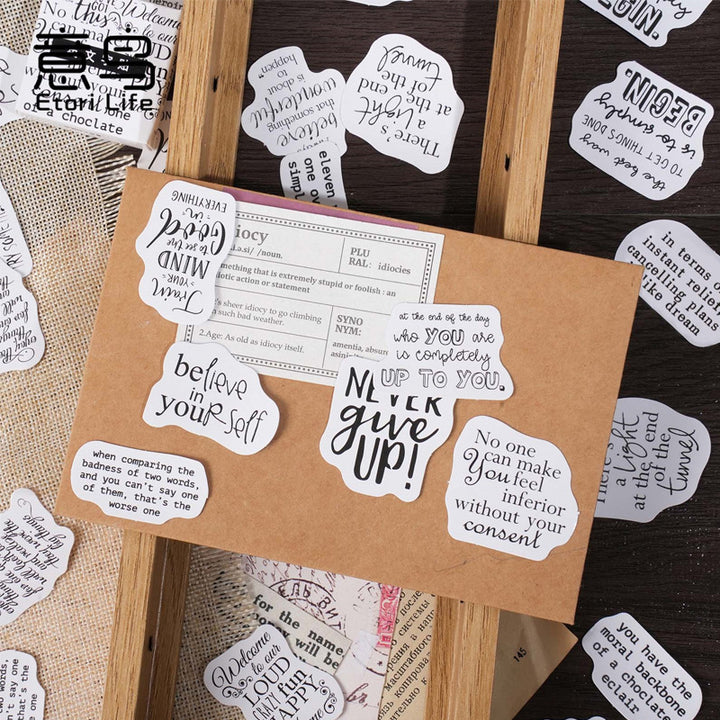 意鸟
Etori Life
of a choclate
happen.
is about
to
wonderful
that something
believe
There's
a light
at the end
of the
tunnel
eleven
one over
simpl
BEGIN.
the best way
TO GET THINGS DONE
is to simply
BEGIN.
in terms o
instant relief
cancelling plans
like dream
Train
YOUR
MIND
to see the
Good
in
EVERYTHING
diocy
/noun.
PLU
RAL: idiocies
mething that is extremely stupid or foolish : an
otic action or statement
's sheer idiocy to go climbing
such bad weather.
2.Age: As old as idiocy itself.
SYNO
NYM:
amentia, absur
at the end of the day
who YOU are
is completely
UP TO YOU.
believe
in
yourself
NEVER
give
UP!
No one
can make
You feel
inferior
without your
consent
when comparing the
badness of two words,
and you can't say one
of them, that's the
worse one
There's
a light
at the end
of the
tunnel
for the name
will be
Welcome
to our
LOUD
CRAZY fun
HAPPY
145
you have the
moral backbone
of a choclate
eclair
two words,
n't say one
at's the
one